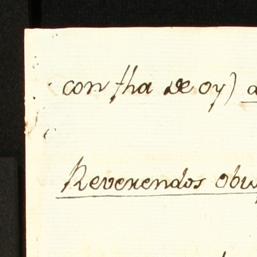 con fha de oy) a
Reverendos obis